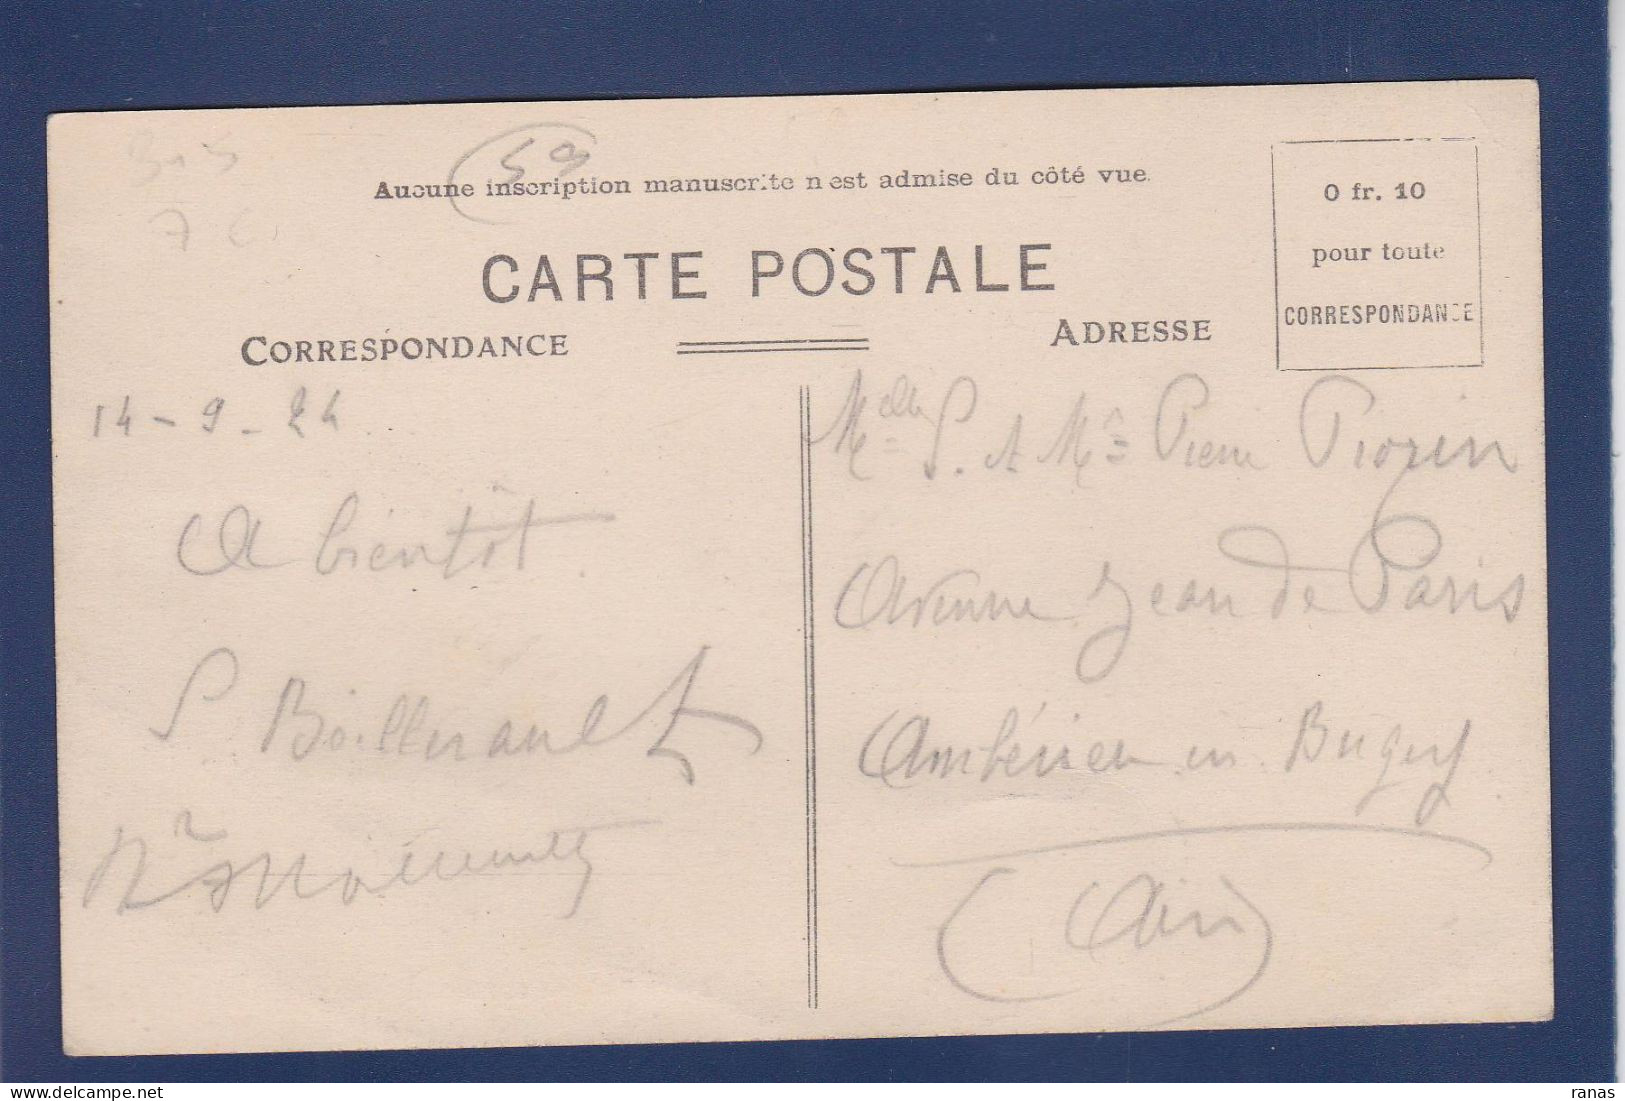 59
Aucune inscription manuscrite n'est admise du côté vue.
0 fr. 10
pour toute
CORRESPONDANCE
CARTE POSTALE
CORRESPONDANCE
ADRESSE
14 - 9 - 24
A bientôt
Melle S. et Mr Pierre Piozin
Avenue Jean de Paris
Ambérieu en Bugey
(Ain)
ranas